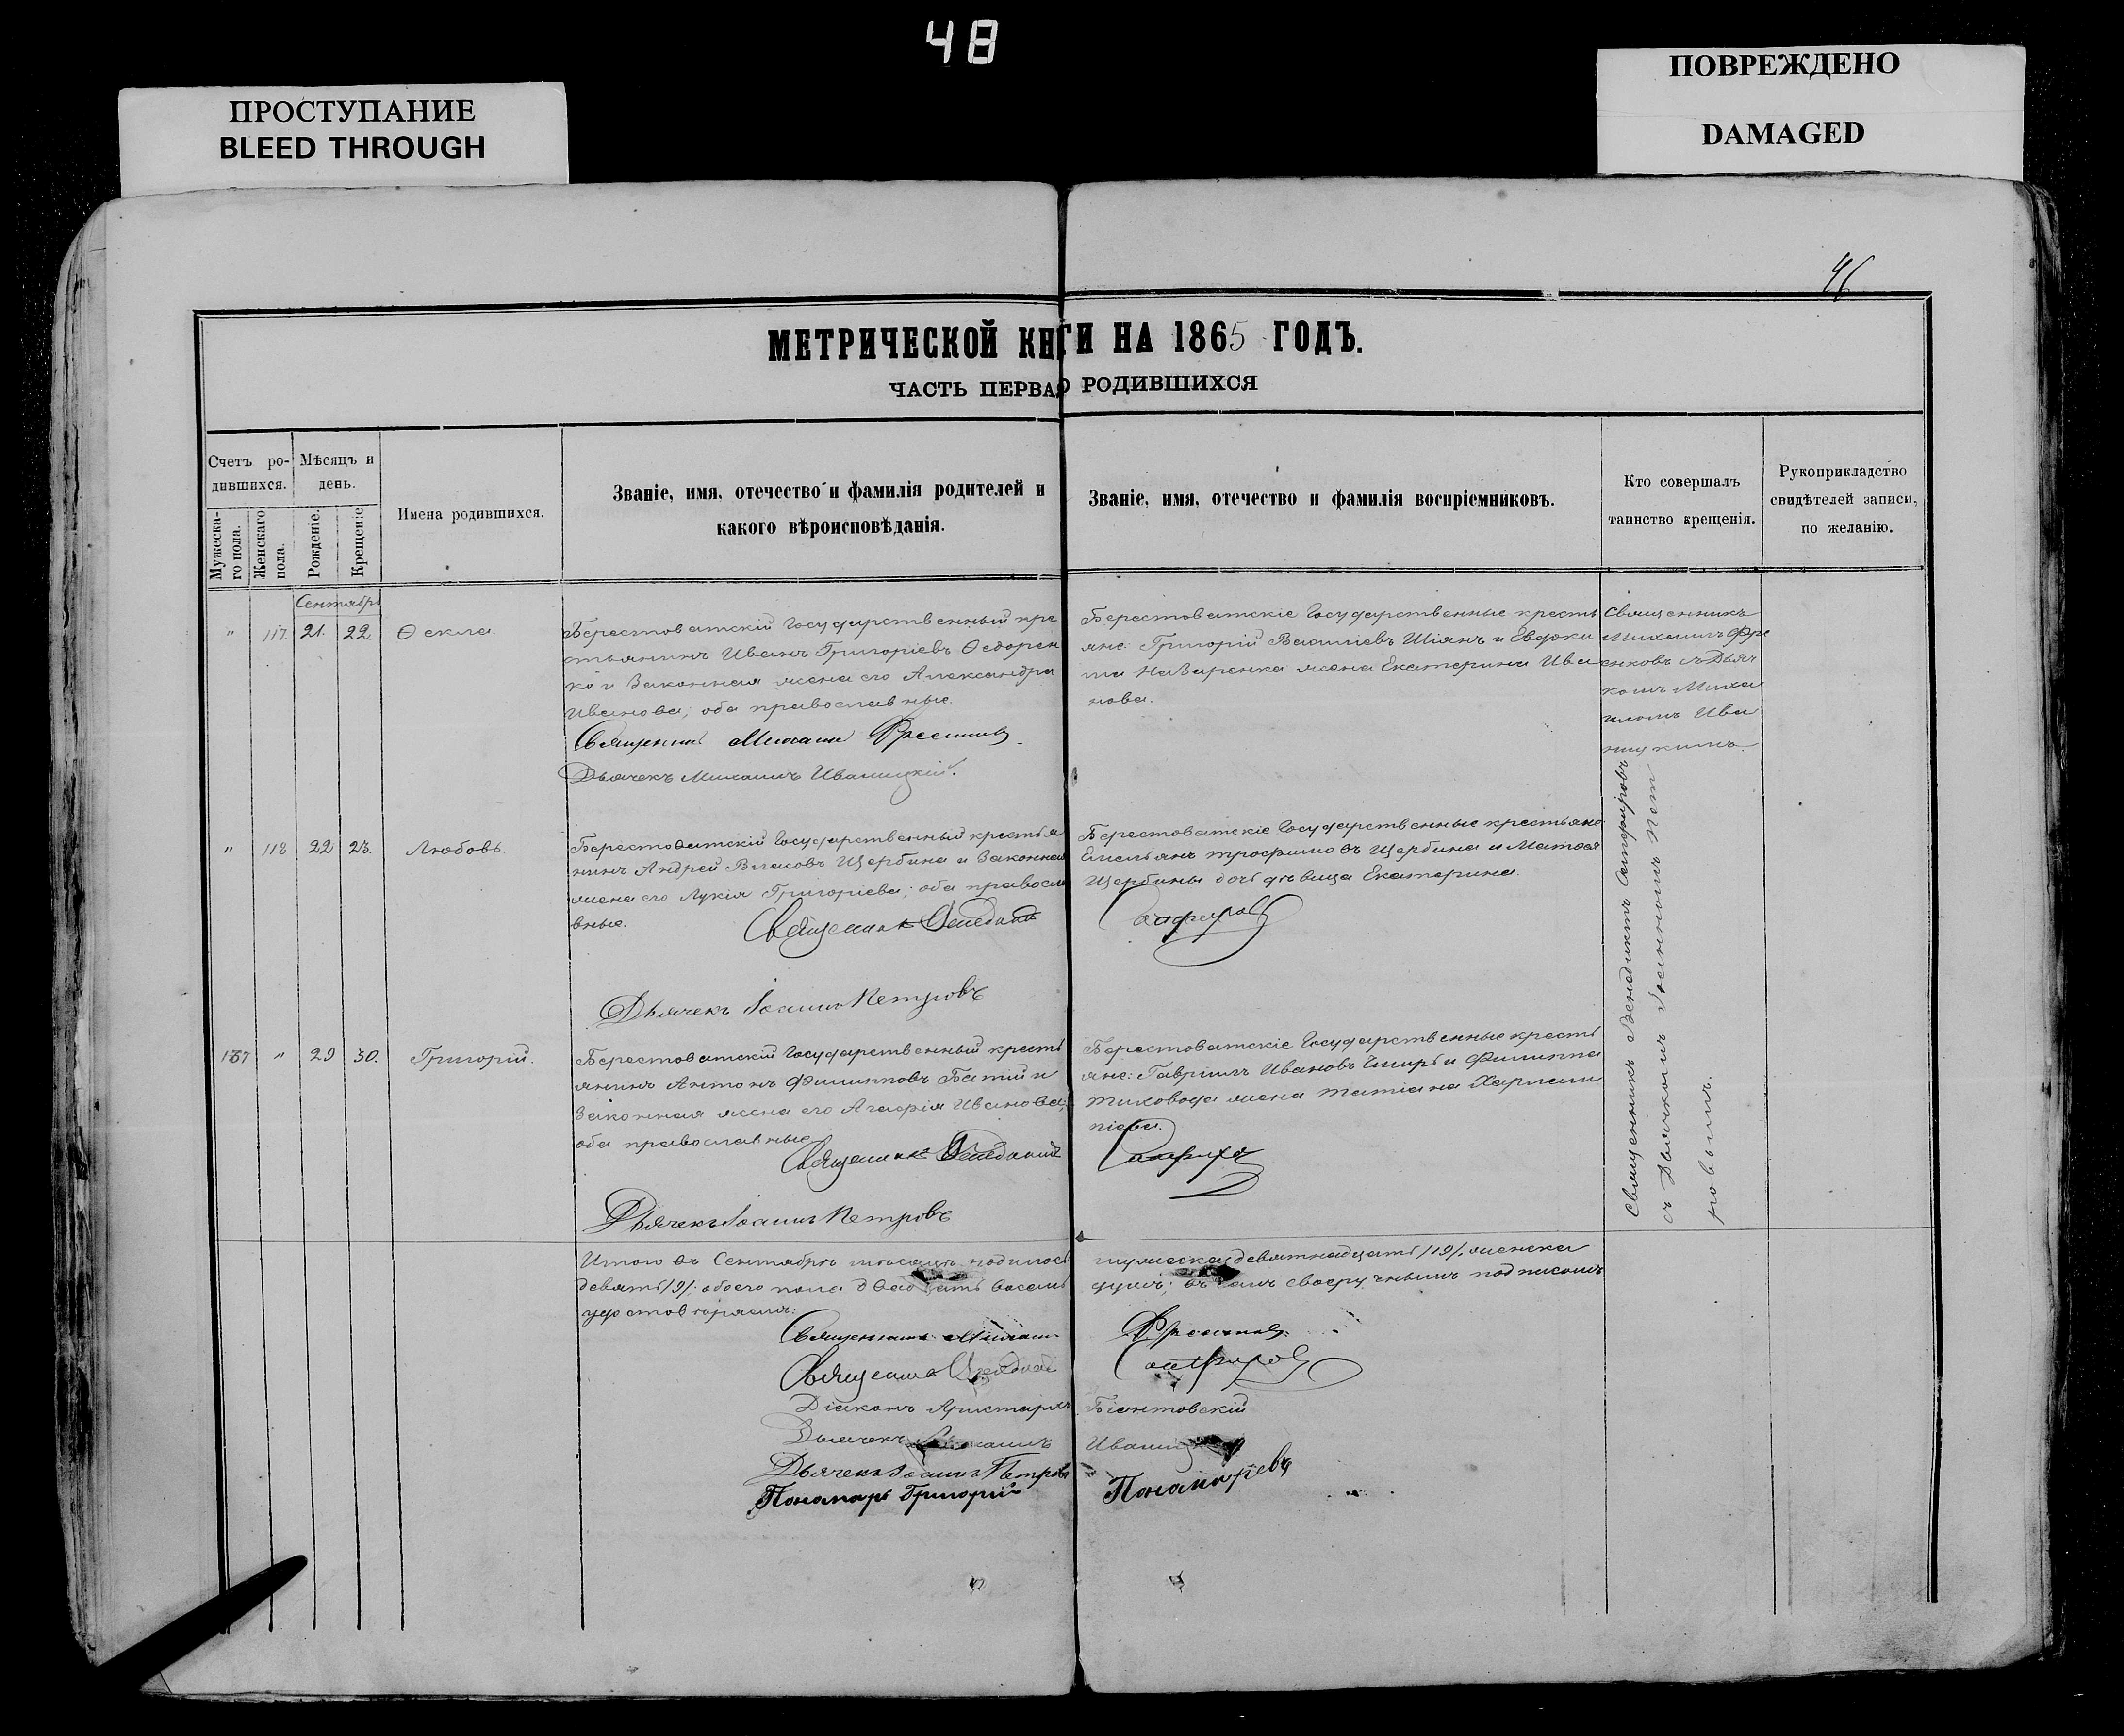 48
ПРОСТУПАНИЕ
BLEED THROUGH
ПОВРЕЖДЕНО
DAMAGED
46
МЕТРИЧЕСКОЙ КНГИ НА 1865 ГОДЪ.
ЧАСТЬ ПЕРВАЯ О РОДИВШИХСЯ
Счетъ ро-
дившихся.
Мужеска-
го пола.
Женскаго
пола.
Мѣсяцъ и
день.
Рожденіе.
Крещеніе
Имена родившихся.
Званіе, имя, отечество и фамилія родителей и
какого вѣроисповѣданія.
Званіе, имя, отечество и фамилія воспріемниковъ.
Кто совершалъ
таинство крещенія.
Рукоприкладство
свидѣтелей записи,
по желанію.
Сентябрь
" 117. 21. 22 Ѳекла.
Берестоватскій Государственный кре
стьянинъ Иванъ Григоріевъ Ѳедорен
ко и Законная жена его Александра
Иванова; оба православные.
Священникъ Михаилъ
Дьячекъ Михаилъ Иваницкій.
Берестоватскіе Государственные кресть
яне: Григорій Василіевъ Шіянъ и Евдоки
ма Назаренка жена Екатерина Ива
нова.
Священникъ
Михаилъ
съ Дьяч
комъ Миха
иломъ Ива
ницкимъ.
" 118 22 23. Любовь.
Берестоватскій Государственный крестья
нинъ Андрей Власовъ Щербина и Законная
жена его Лукія Григоріева; оба правосла
вные.
Священникъ Венедиктъ
Дьячекъ Іоаннъ Петровъ
Берестоватскіе Государственные крестьяне
Емельянъ Трофимовъ Щербина и Матѳея
Щербины дочь дѣвица Екатерина.
Сапфировъ
Священникъ Венедиктъ Сапфировъ
съ Дьячкомъ Іоанномъ Пет
ровымъ.
167 " 29 30. Григорій.
Берестоватскій Государственный кресть
янинъ Антонъ Филипповъ Батій и
Законная жена его Агафія Иванова;
оба православные
Священникъ Венедиктъ
Дьячекъ Іоаннъ Петровъ
Берестоватскіе Государственные кресть
яне: Гавріилъ Ивановъ и Филиппа
жена Татіана Харлам
піева.
Сапфировъ
Итого въ Сентябрѣ мѣсяцѣ родилось
девять /9/; обоего пола двадцать восемь
удостовѣряемъ:
мужеска девятнадцать /19/, женска
душъ; въ чемъ своеручнымъ подписомъ
Священникъ Михаилъ
Священникъ Венедиктъ Сапфировъ
Діаконъ Аристархъ
Дьячекъ Михаилъ Иваницкій
Дьячекъ Іоаннъ Петровъ
Понамарь Григорій Понамаревъ